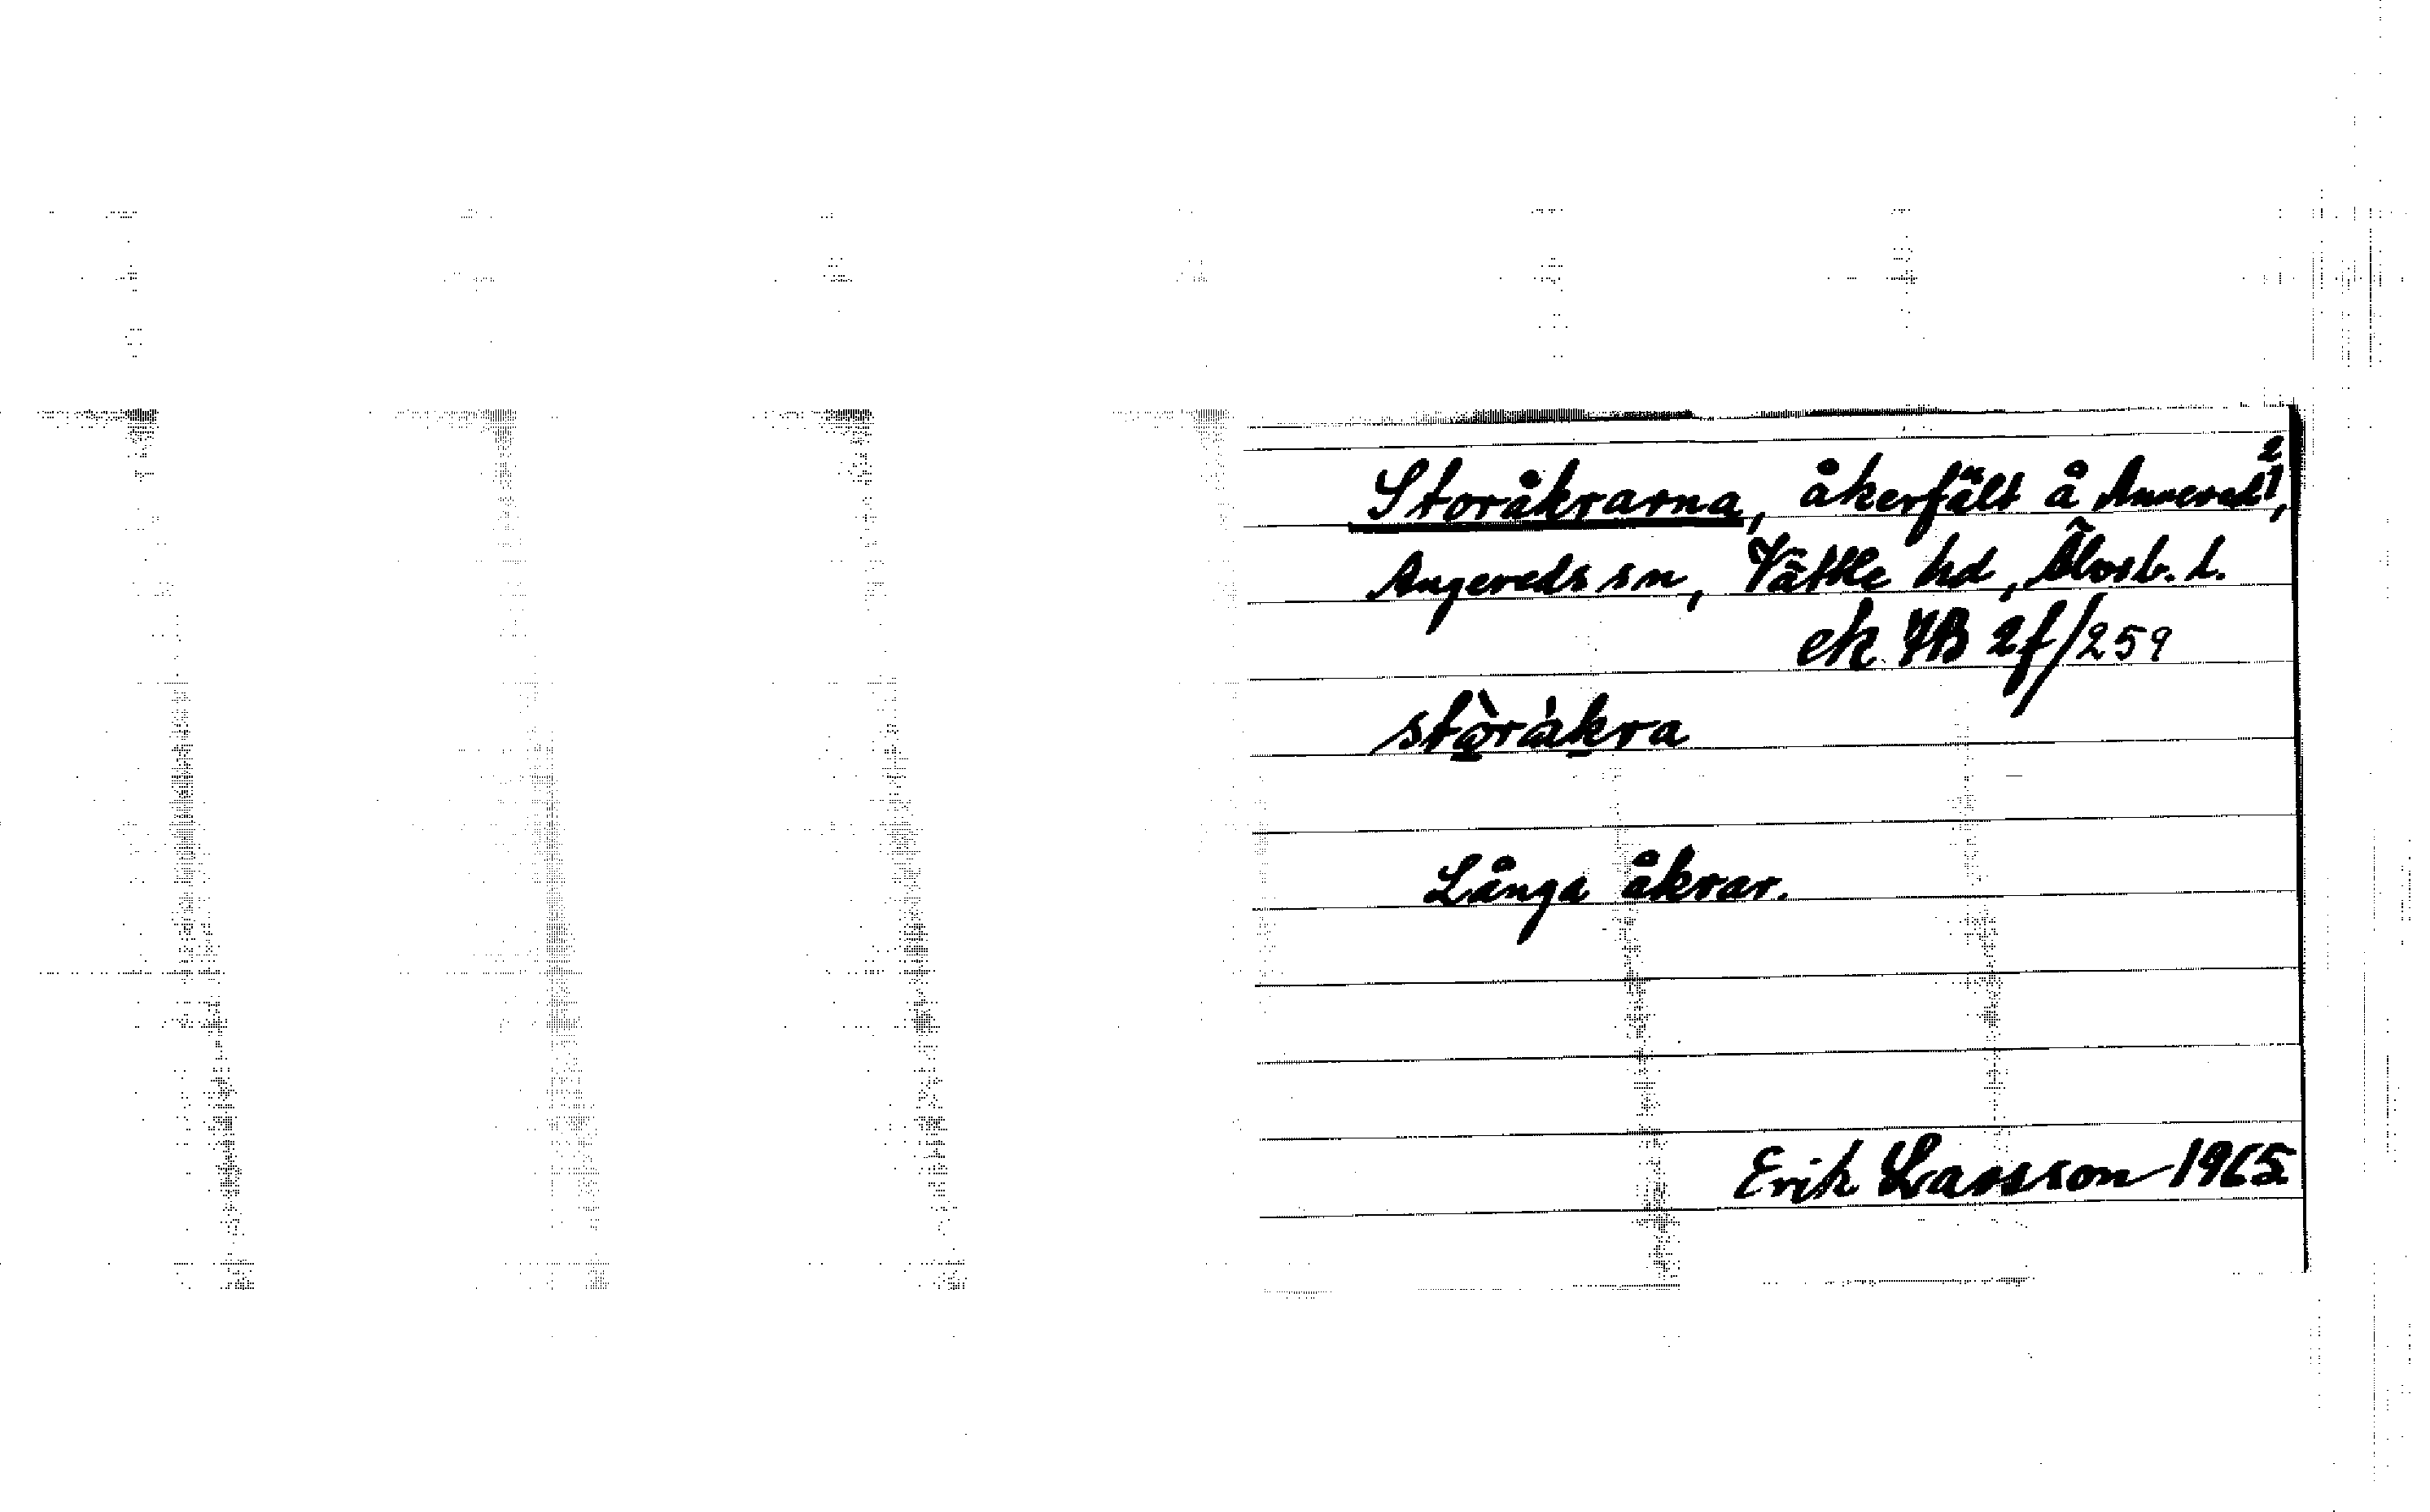 Storåkrarna, åkerfält å Annered 1²,
Angereds sn, Vättle hd, Älvsb. L.
ek 7B 2f/259
stòràkra
Långa åkrar.
Erik Larsson 1965